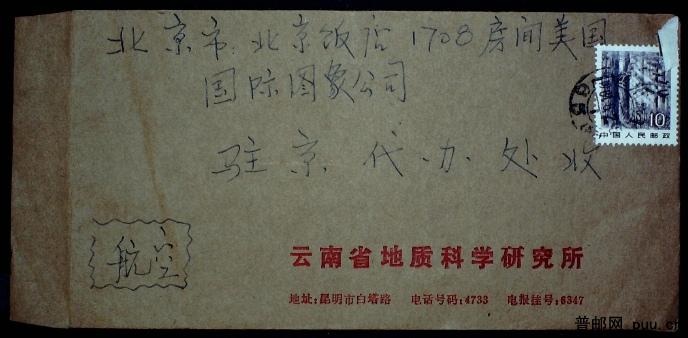 北京市 北京饭店1708房间美国
国际图象公司
驻京代办处收
10
中国人民邮政
航空
云南省地质科学研究所
地址:昆明市白塔路 电话号码:4733 电报挂号:6347
普邮网 puu.c